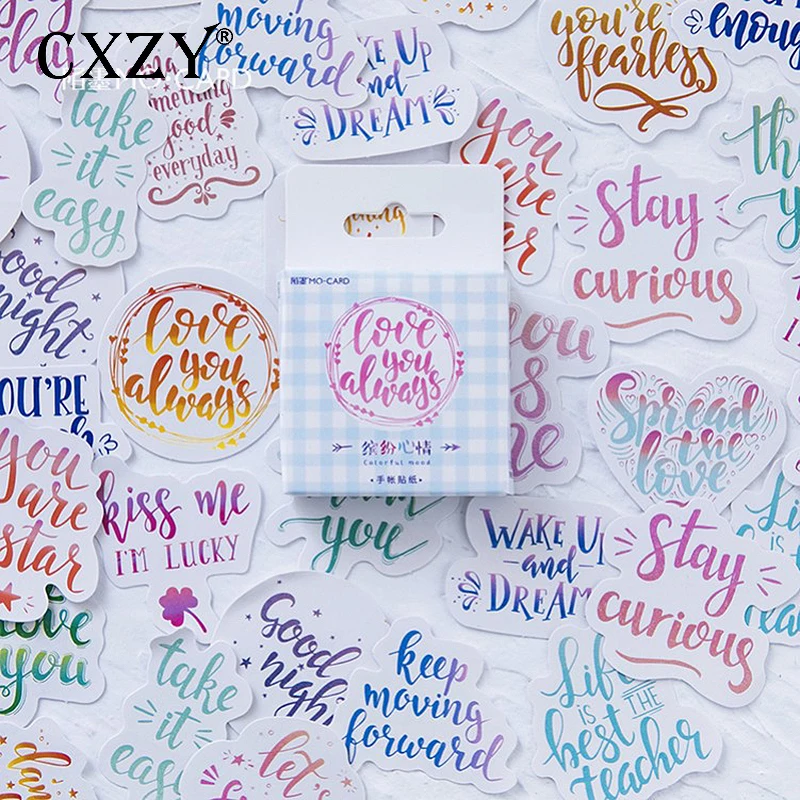 CXZY®
陌墨 MO-CARD
day
keep
moving
forward
WAKE UP
and
DREAM
you're
fearless
enough
take
it
easy
something
good
everyday
you
are
star
stay
curious
th
you
good
night.
love
you
always
thing
陌墨 MO-CARD
love
you
always
缤纷心情
Colorful mood
·手帐贴纸·
you
is
me
Spread
the
love
YOU'RE
you
are
star
kiss me
I'M LUCKY
you
WAKE UP
and
DREAM
stay
curious
Life
is
be
teac
love
you
take
it
easy
Good
night
keep
moving
forward
Life
IS THE
best
teacher
dan
let's